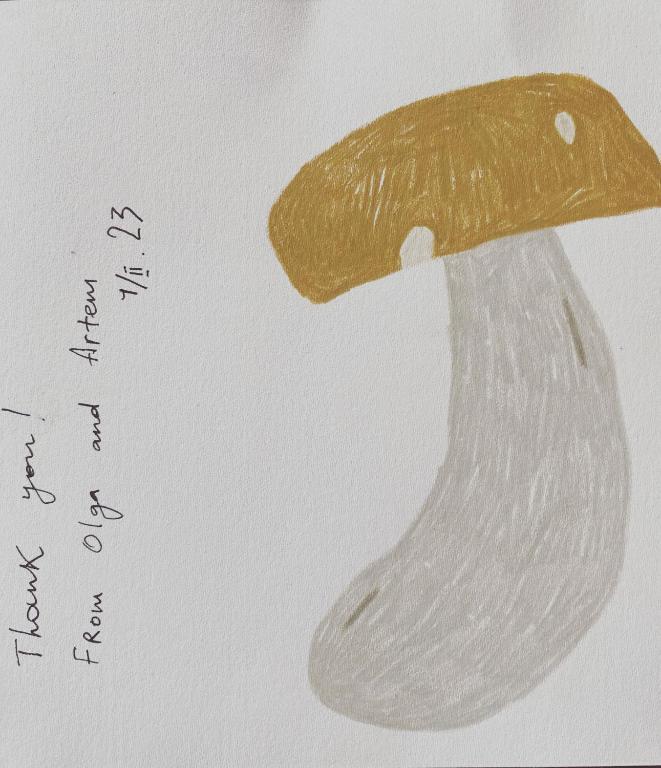 Thank you!
From Olga and Artem
4/II.23